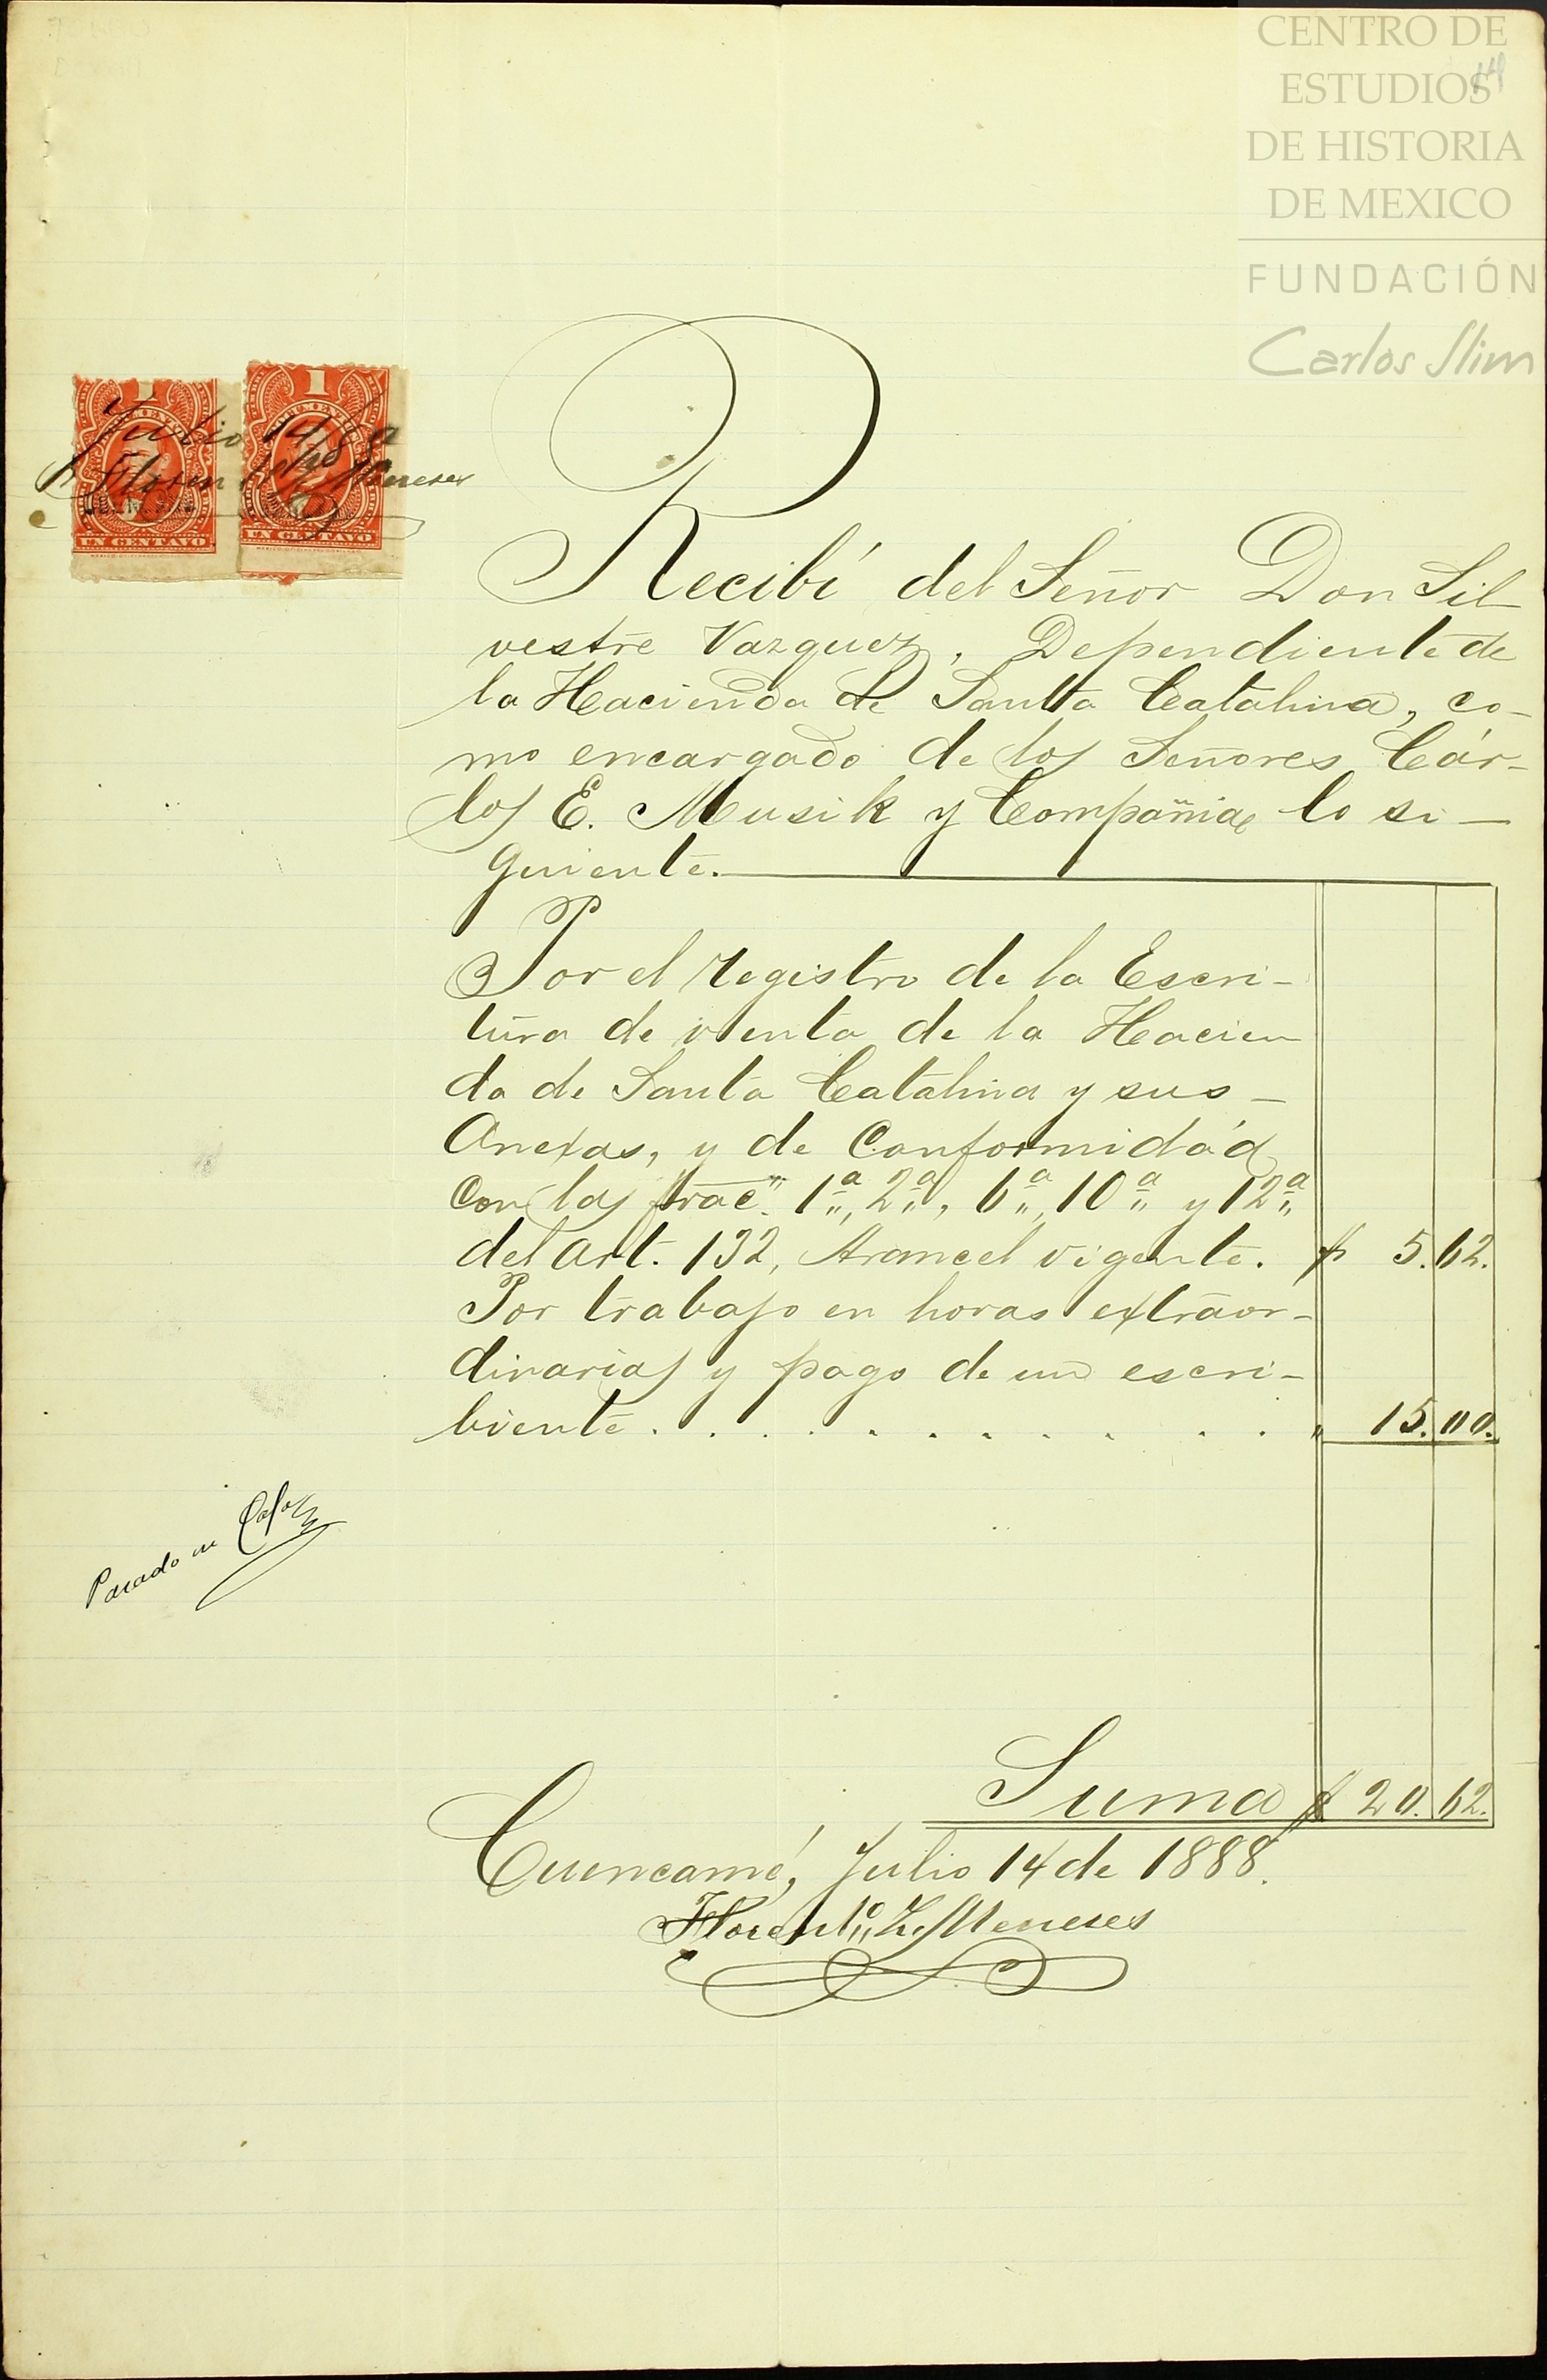 CENTRO DE
ESTUDIOS
DE HISTORIA
DE MEXICO
FUNDACIÓN
Carlos Slim
14
1
1
Julio 14/88
Meneses
UN CENTAVO
UN CENTAVO
Recibí del Señor Don Sil
vestre Vazquez, Dependiente de
la Hacienda de Santa Catalina, co-
mo encargado de los Señores Cár-
los E. Musik y Compañia, lo si-
guiente.
Por el registro de la Escri-
tura de venta de la Hacien
da de Santa Catalina y sus
Anexas, y de Conformidád
Con las frac.s 1ª, 2ª, 6ª, 10ª y 12ª
del art. 132, Arancel vigente. $ 5.62.
Por trabajo en horas extraor-
dinarias y pago de un escri-
biente . . . . . . . . . . " 15.00.
Pasado en
Suma $ 20.62.
Cuencamé, Julio 14 de 1888.
Florentº L. Meneses